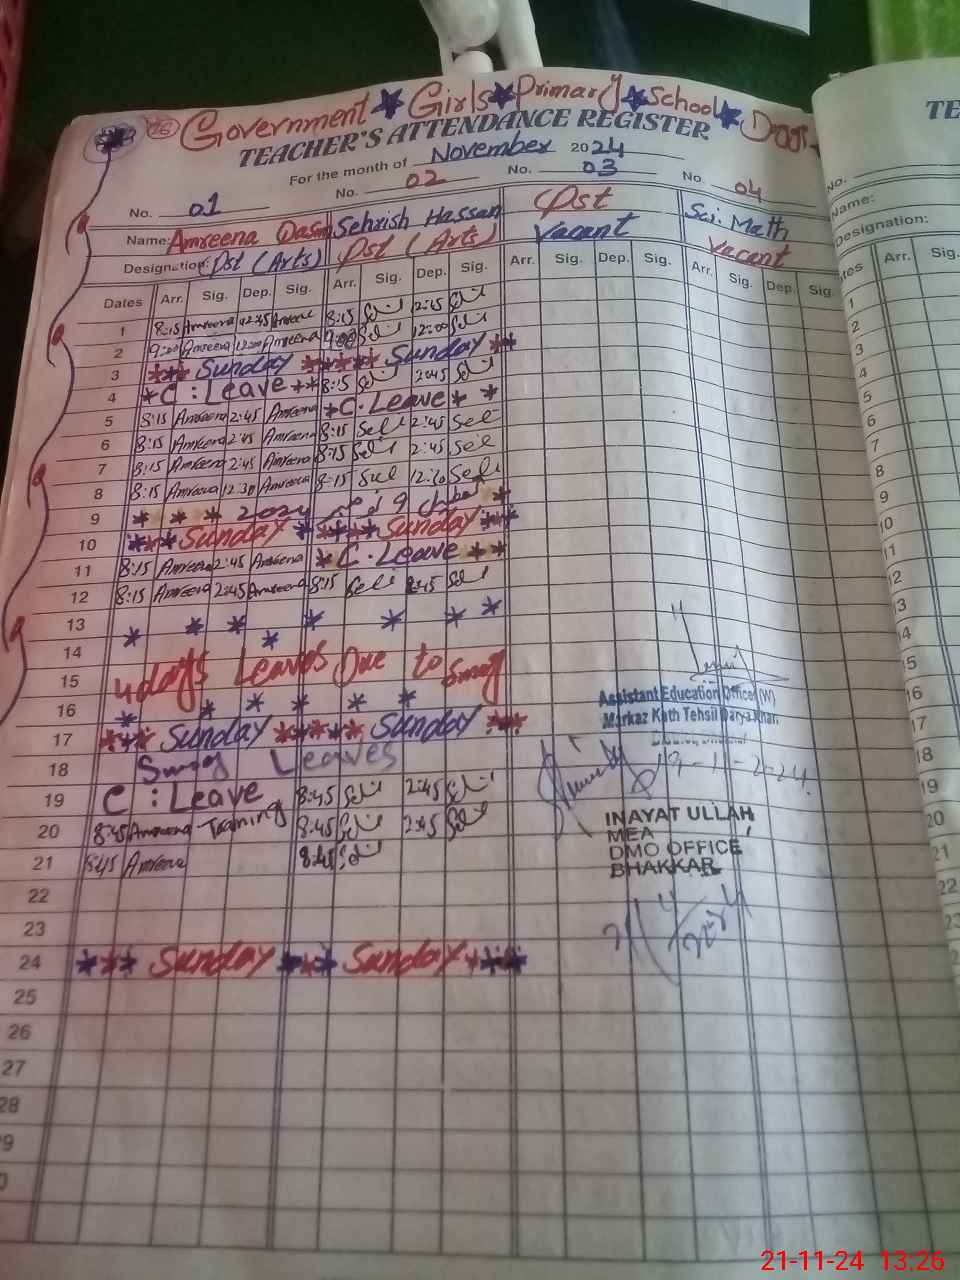 Government Girls Primary School
TEACHER'S ATTENDANCE REGISTER
TE
For the month of November 2024
No. 01 No. 02 No. 03 No. 04
No.
Name: Amreena Sehrish Hassan Pst Sci. Math
Name:
Designation: Pst (Arts) Pst (Arts) Vacant Vacant
Designation:
Dates Arr. Sig. Dep. Sig. Arr. Sig. Dep. Sig. Arr. Sig. Dep. Sig. Arr. Sig. Dep. Sig.
Arr. Sig.
1 8:15 Amreena 12:45 Amreena 8:15 12:45
2 9:00 Amreena 12:00 Amreena 9:00 12:00
3 *** Sunday ***** Sunday **
4 * C : Leave ** 8:15 2:45
5 8:15 Amreena 2:45 Amreena * C. Leave * *
6 8:15 Amreena 2:45 Amreena 8:15 2:45
7 8:15 Amreena 2:45 Amreena 8:15 2:45
8 8:15 Amreena 12:30 Amreena 8:15 12:30
9 * * * *
10 *** Sunday * **** Sunday ***
11 8:15 Amreena 2:45 Amreena * C. Leave * *
12 8:15 Amreena 2:45 Amreena 8:15 2:45
13
14
15 4 days Leaves Due to Smog
16
17 *** Sunday ***** Sunday ***
18 Smog Leaves
19 C : Leave 8:45 2:45
20 8:45 Amreena Training 8:45 2:45
21 8:45 Amreena 8:45
22
23
24 *** Sunday *** Sunday ****
25
26
27
28
Assistant Education Officer (W)
Markaz Kath Tehsil Darya Khan
19-11-2024
INAYAT ULLAH
MEA
DMO OFFICE
BHAKKAR
21-11-24 13:26